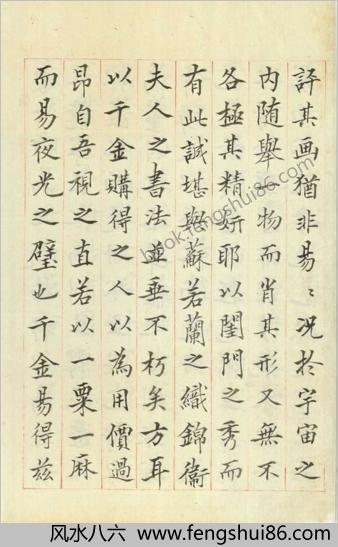 評其画猶非易〻况於宇宙之
内随舉一物而肖其形又無不
各極其精妍耶以閨門之秀而
有此誠堪與蘇若蘭之織錦衞
夫人之書法並垂不朽矣方耳
以千金購得之人以為用價過
昂自吾視之直若以一粟一麻
而易夜光之璧也千金易得兹
book.fengshui86.com
风水八六 www.fengshui86.com